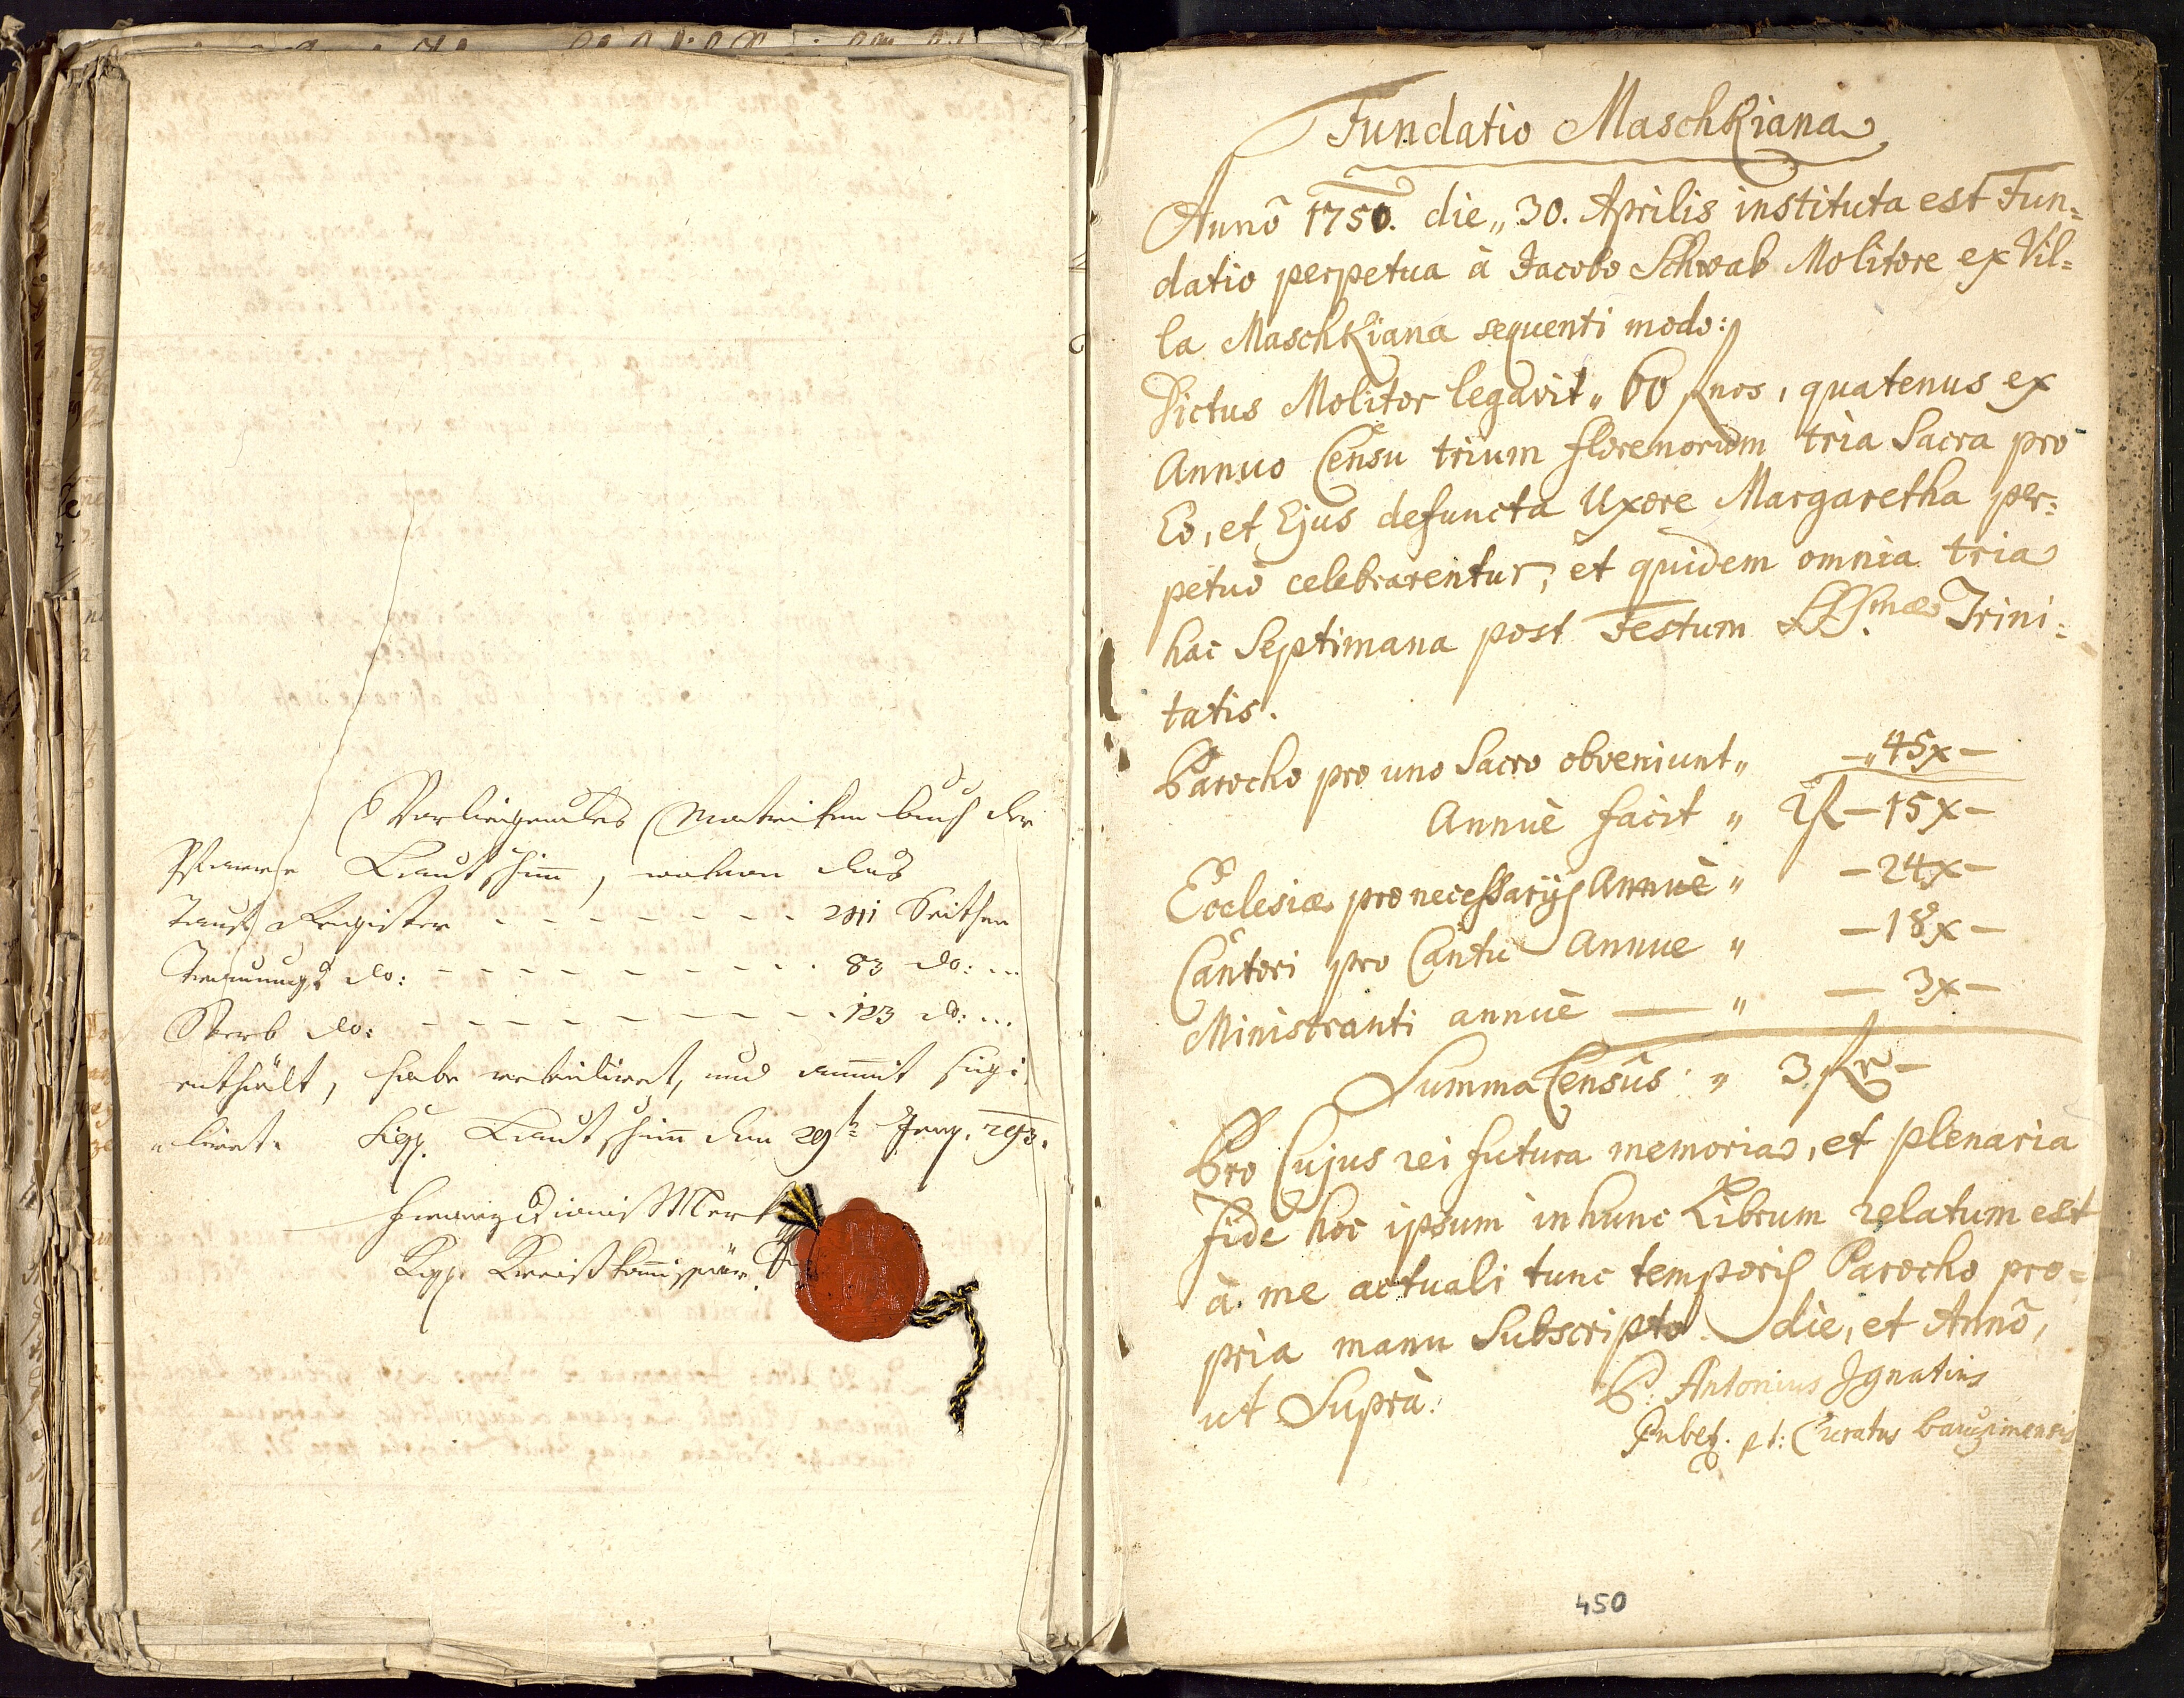 Vorliegendes Matriken buch der
Pfarre Bautschim, wovon das
Tauf Register - - - - - - - - 241 Seithen
Trauungs do: - - - - - - - - - - 83 do: ...
Sterb do: - - - - - - - - - - 123 do: ...
enthält, habe revidiret, und anmit sigi
liret. Sigg. Bautschim den 29t
Merk
Kreiskommissär
Fundatio Maschkiana
Annô 1750. die„ 30. Aprilis instituta est Fun=
datio perpetua à Jacobo Schwab Molitore ex Vil=
la Maschkiana sequenti modo:
Dictus Molitor legavit„ 60 flnos, quatenus ex
Annuo Censu trium florenorum tria Sacra pro
Eo, et Ejus defuncta Uxore Margaretha per=
petuò celebrarentur, et quidem omnia tria
hac Septimana post Festum SSSmae Trini=
tatis.
Parocho pro uno Sacro obveniunt„ —„45x—
Annuè facit „ 2f—15x—
Ecclesiae pro necessarijs Annuè „ —24x—
Cantori pro Cantu Annue „ —18x—
Ministranti annuè — „ — 3x—
Summa Censûs „ 3 fl—
Pro Cujus rei futura memoria, et plenaria
fide hoc ipsum in hunc Librum relatum est
à me actuali tunc temporis Parocho pro=
pria manu Subscripto die, et Annô,
ut Suprà.
P. Antonius Ignatius
p.t: Curatus
450